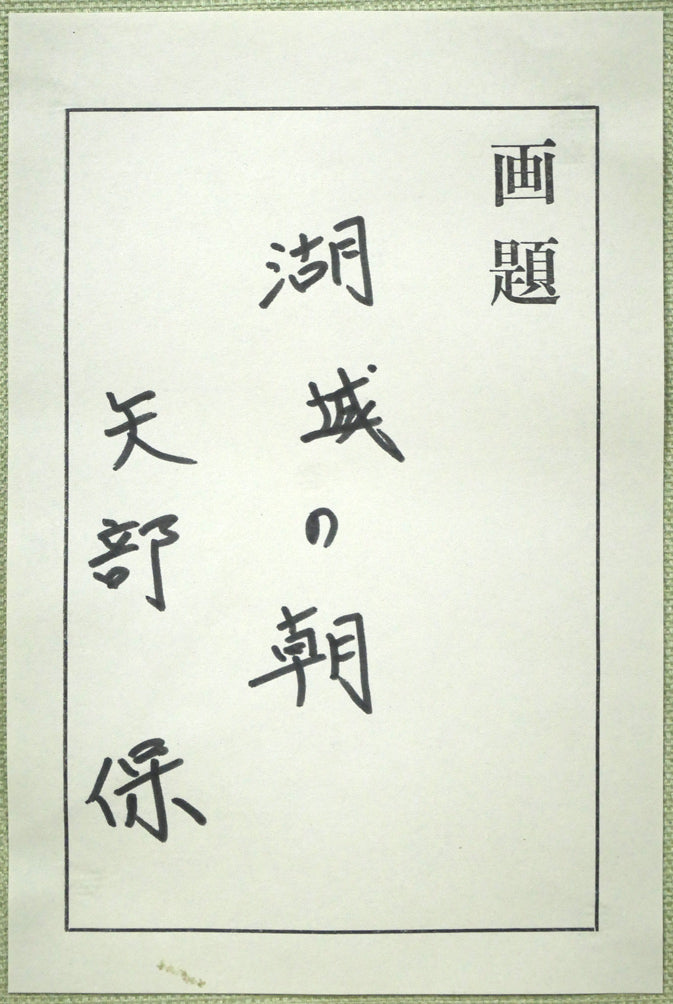 画題
湖城の朝
矢部保